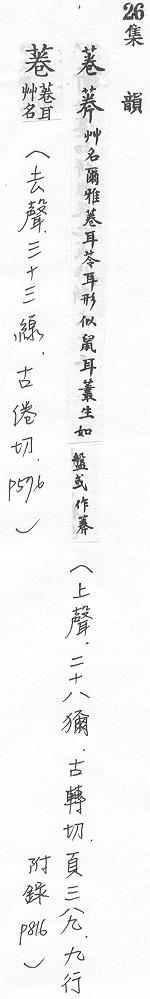 26集韻
菤菤草名爾雅菤耳苓耳形似鼠耳叢生如盤或作菤
（上聲．二十八獮．古轉切．頁三八九．九行
附錄p816）
菤菤耳艸名
（去聲．三十三線．古倦切．p576）